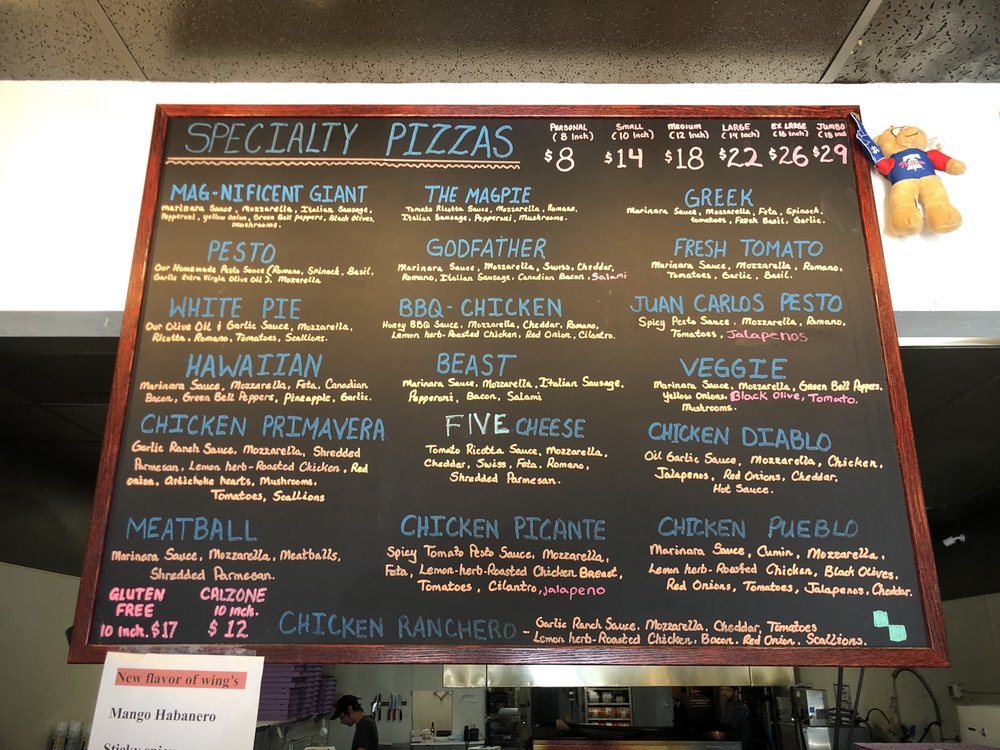 SPECIALTY PIZZAS
PERSONAL SMALL MEDIUM LARGE EX LARGE JUMBO
(8 inch) (10 inch) (12 inch) (14 inch) (16 inch)
$8 $14 $18 $22 $26 $29
MAG-NIFICENT GIANT
Marinara Sauce, Mozzarella, Italian Sausage,
Pepperoni, Yellow Onion, Green Bell Peppers, Black Olives,
Mushrooms.
THE MAGPIE
Tomato Ricotta Sauce, Mozzarella, Romano,
Italian Sausage, Pepperoni, Mushrooms.
GREEK
Marinara Sauce, Mozzarella, Feta, Spinach,
tomatoes, Fresh Basil, Garlic.
PESTO
Our Homemade Pesto Sauce (Romano, Spinach, Basil,
Garlic Extra Virgin Olive Oil), Mozzarella
GODFATHER
Marinara Sauce, Mozzarella, Swiss, Cheddar,
Romano, Italian Sausage, Canadian Bacon, Salami
FRESH TOMATO
Marinara Sauce, Mozzarella, Romano,
Tomatoes, Garlic, Basil.
WHITE PIE
Our Olive Oil & Garlic Sauce, Mozzarella,
Ricotta, Romano, Tomatoes, Scallions.
BBQ-CHICKEN
Honey BBQ Sauce, Mozzarella, Cheddar, Romano,
Lemon herb-Roasted Chicken, Red Onion, Cilantro.
JUAN CARLOS PESTO
Spicy Pesto Sauce, Mozzarella, Romano,
Tomatoes, Jalapenos
HAWAIIAN
Marinara Sauce, Mozzarella, Feta, Canadian
Bacon, Green Bell Peppers, Pineapple, Garlic.
BEAST
Marinara Sauce, Mozzarella, Italian Sausage,
Pepperoni, Bacon, Salami
VEGGIE
Marinara Sauce, Mozzarella, Green Bell Peppers,
Yellow Onions, Black Olive, Tomato,
Mushrooms.
CHICKEN PRIMAVERA
Garlic Ranch Sauce, Mozzarella, Shredded
Parmesan, Lemon herb-Roasted Chicken, Red
onion, Artichoke hearts, Mushrooms,
Tomatoes, Scallions
FIVE CHEESE
Tomato Ricotta Sauce, Mozzarella,
Cheddar, Swiss, Feta, Romano,
Shredded Parmesan.
CHICKEN DIABLO
Oil Garlic Sauce, Mozzarella, Chicken,
Jalapenos, Red Onions, Cheddar,
Hot Sauce.
MEATBALL
Marinara Sauce, Mozzarella, Meatballs,
Shredded Parmesan.
CHICKEN PICANTE
Spicy Tomato Pesto Sauce, Mozzarella,
Feta, Lemon-herb-Roasted Chicken Breast,
Tomatoes, Cilantro, jalapeno
CHICKEN PUEBLO
Marinara Sauce, Cumin, Mozzarella,
Lemon herb-Roasted Chicken, Black Olives,
Red Onions, Tomatoes, Jalapenos, Cheddar.
GLUTEN
FREE
10 inch. $17
CALZONE
10 inch.
$12
CHICKEN RANCHERO - Garlic Ranch Sauce, Mozzarella, Cheddar, Tomatoes
Lemon herb-Roasted Chicken, Bacon, Red Onion, Scallions.
New flavor of wing's
Mango Habanero